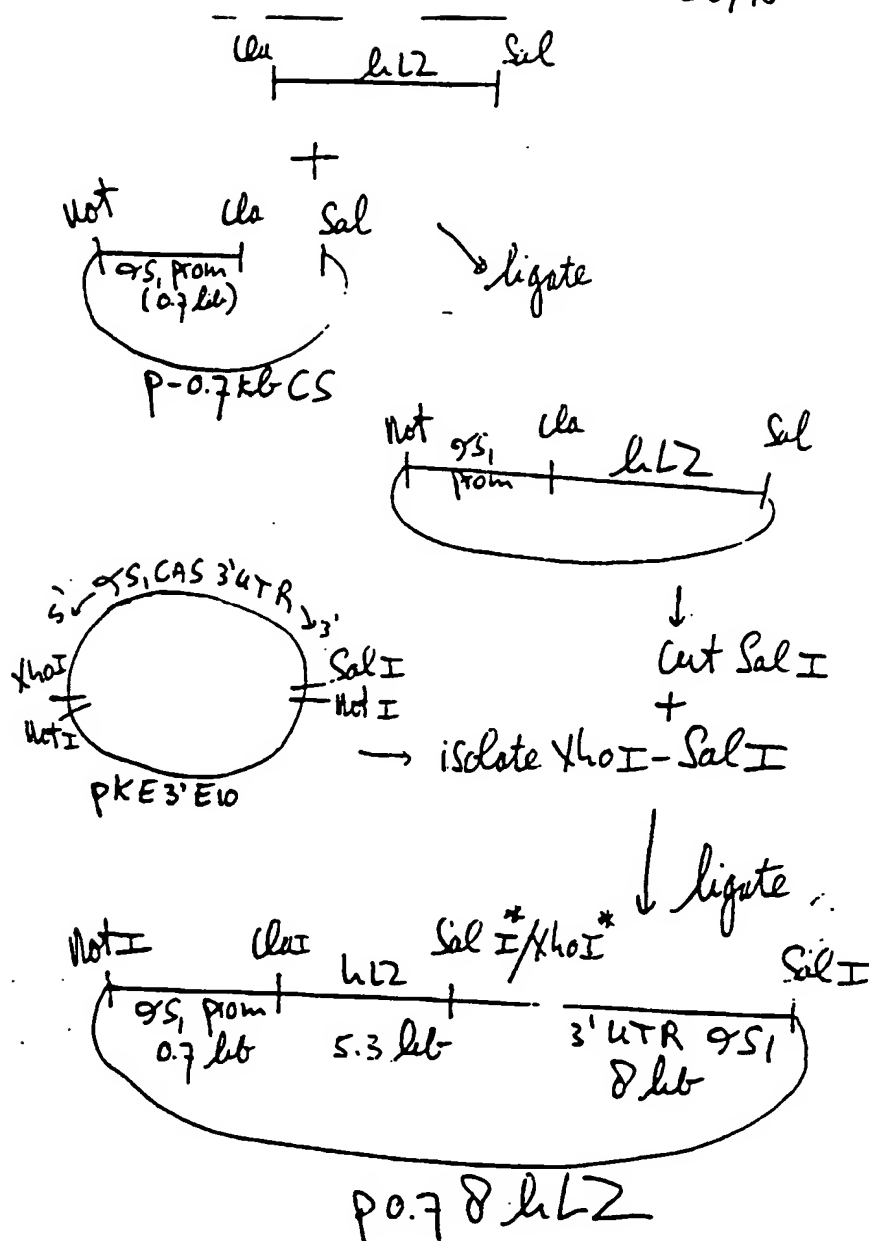 Cla hLZ Sal
+
Not Cla Sal
αS₁ prom
(0.7 kb)
ligate
p-0.7kb CS
Not αS₁ prom Cla hLZ Sal
5' αS₁CAS 3'UTR 3'
XhoI SalI
NotI NotI
pKE3'E10
Cut SalI
+
isolate XhoI-SalI
ligate
NotI ClaI hLZ SalI*/XhoI* SalI
αS₁ prom 5.3 kb 3'UTR αS₁
0.7 kb 8 kb
p0.7 8 hLZ